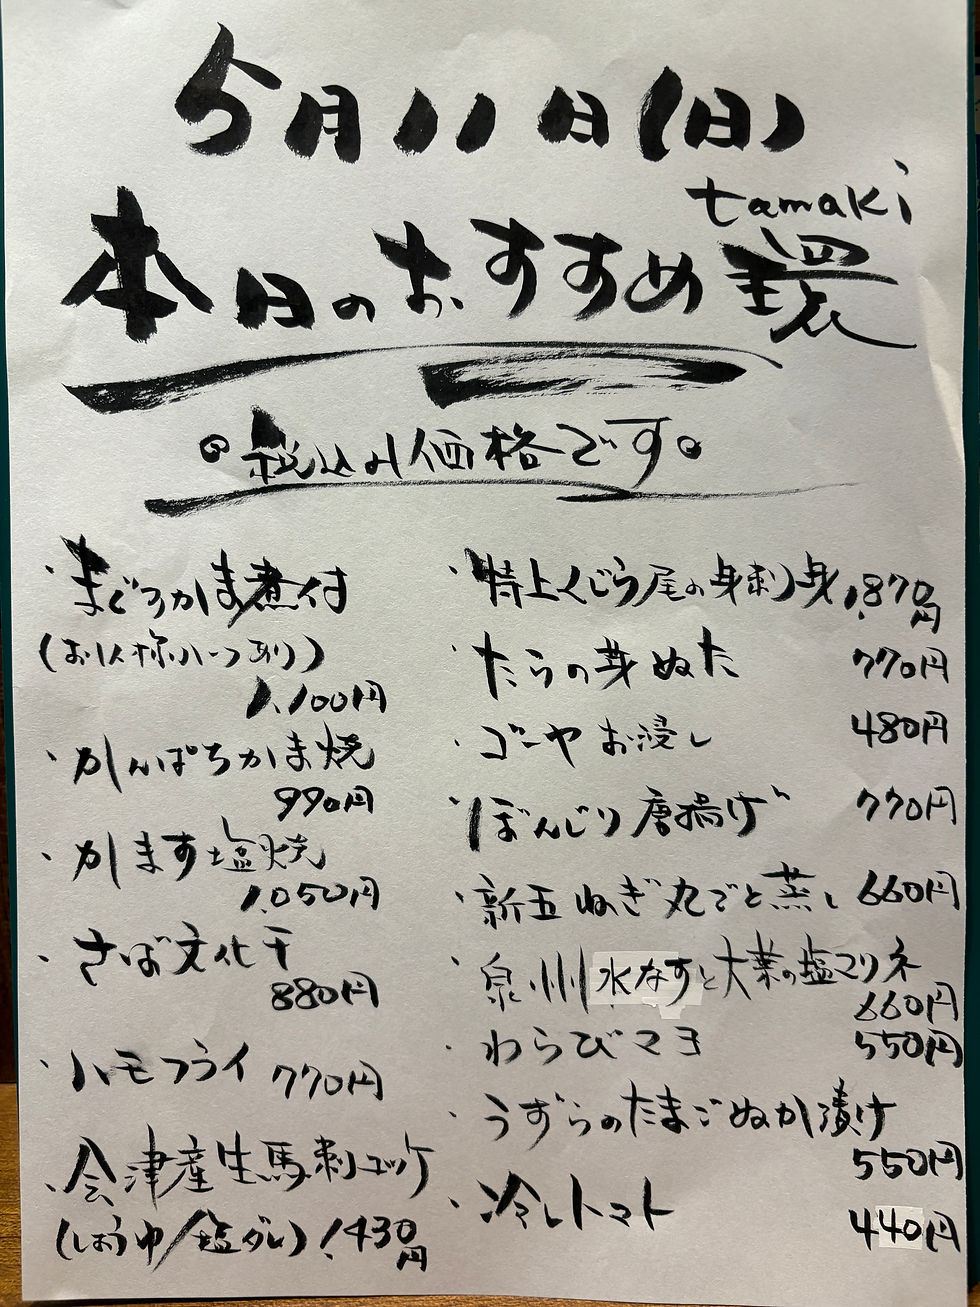 5月11日(日)
tamaki
本日のおすすめ 環
◦税込み価格です◦
・まぐろかま煮付
(お1人様ハーフあり)
1,100円
・かんぱちかま焼
990円
・かます塩焼
1,050円
・さば文化干
880円
・ハモフライ 770円
・会津産生馬刺ユッケ
(しょうゆ/塩ダレ) 1,430円
・特上くじら尾の身刺身 1,870円
・たらの芽ぬた 770円
・ゴーヤお浸し 480円
・ぼんじり唐揚げ 770円
・新玉ねぎ丸ごと蒸し 660円
・泉州水なすと大葉の塩マリネ
660円
・わらびマヨ 550円
・うずらのたまごぬか漬け
550円
・冷しトマト 440円